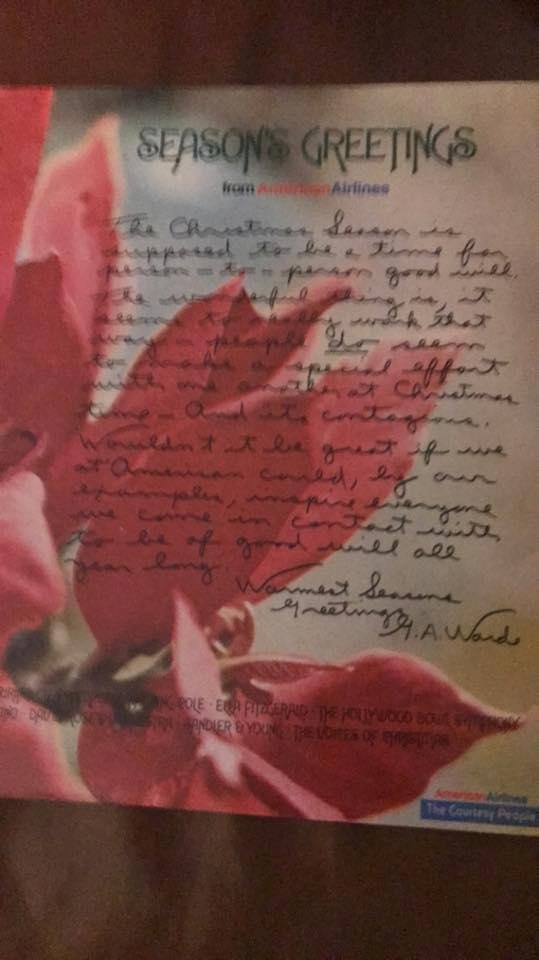 SEASON'S GREETINGS
from American Airlines
The Christmas Season is
supposed to be a time for
person-to-person good will.
The wonderful thing is, it
seems to really work that
way - people do seem
to make a special effort
with one another at Christmas
time - And its contagious.
Wouldn't it be great if we
at American could, by our
examples, inspire everyone
we come in contact with
to be of good will all
year long.
Warmest Seasons
Greetings
G.A. Ward
KING COLE · ELLA FITZGERALD · THE HOLLYWOOD BOWL SYMPHONY
DAVID ROSE ORCHESTRA · SANDLER & YOUNG · THE VOICES OF CHRISTMAS
American Airlines
The Courtesy People